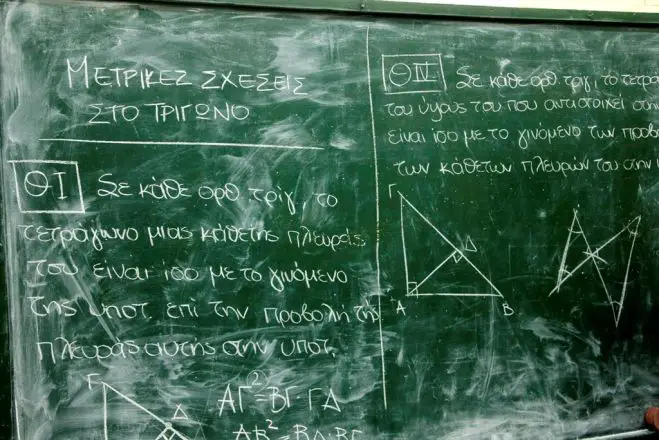 ΜΕΤΡΙΚΕΣ ΣΧΕΣΕΙΣ
ΣΤΟ ΤΡΙΓΩΝΟ
ΘΙ Σε κάθε ορθ. τριγ, το
τετράγωνο μιας κάθετης πλευράς
του είναι ισο με το γινόμενο
της υποτ. επί την προβολή της
πλευράς αυτής στην υποτ.
Γ
Δ
ΑΓ²=ΒΓ·ΓΔ
ΑΒ²=ΒΔ·ΒΓ
ΘΙΙ Σε κάθε ορθ. τριγ, το τετρά
του ύψους του που αντιστοιχεί στην
είναι ισο με το γινόμενο των προβο
των κάθετων πλευρών του στην
Γ
Δ
Α
Β